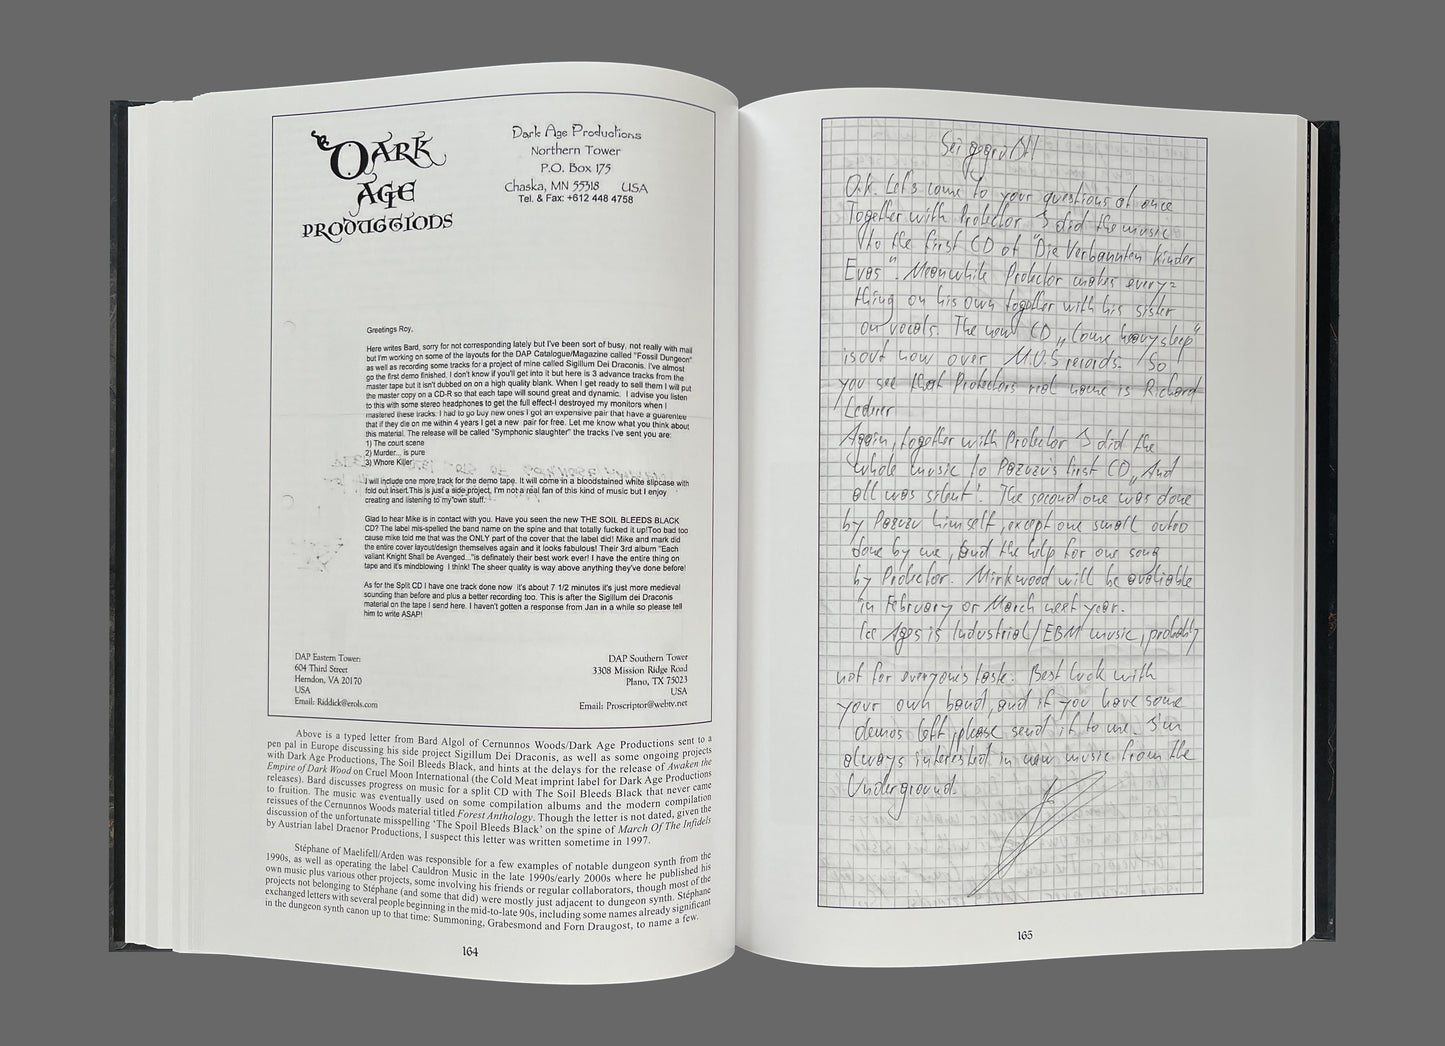 DARK
AGE
PRODUCTIONS
Dark Age Productions
Northern Tower
P.O. Box 175
Chaska, MN 55318 USA
Tel. & Fax: +612 448 4758
Greetings Roy,
Here writes Bard, sorry for not corresponding lately but I've been sort of busy, not really with mail
but I'm working on some of the layouts for the DAP Catalogue/Magazine called "Fossil Dungeon"
as well as recording some tracks for a project of mine called Sigillum Dei Draconis. I've almost
go the first demo finished. I don't know if you'll get into it but here is 3 advance tracks from the
master tape but it isn't dubbed on on a high quality blank. When I get ready to sell them I will put
the master copy on a CD-R so that each tape will sound great and dynamic. I advise you listen
to this with some stereo headphones to get the full effect-I destroyed my monitors when I
mastered these tracks. I had to go buy new ones I got an expensive pair that have a guarentee
that if they die on me within 4 years I get a new pair for free. Let me know what you think about
this material. The release will be called "Symphonic slaughter" the tracks I've sent you are:
1) The court scene
2) Murder... is pure
3) Whore Killer
I will include one more track for the demo tape. It will come in a bloodstained white slipcase with
fold out insert.This is just a side project, I'm not a real fan of this kind of music but I enjoy
creating and listening to my own stuff.
Glad to hear Mike is in contact with you. Have you seen the new THE SOIL BLEEDS BLACK
CD? The label mis-spelled the band name on the spine and that totally fucked it up!Too bad too
cause mike told me that was the ONLY part of the cover that the label did! Mike and mark did
the entire cover layout/design themselves again and it looks fabulous! Their 3rd album "Each
valiant Knight Shall be Avenged..."is definately their best work ever! I have the entire thing on
tape and it's mindblowing I think! The sheer quality is way above anything they've done before!
As for the Split CD I have one track done now it's about 7 1/2 minutes it's just more medieval
sounding than before and plus a better recording too. This is after the Sigillum dei Draconis
material on the tape I send here. I haven't gotten a response from Jan in a while so please tell
him to write ASAP!
DAP Eastern Tower:
604 Third Street
Herndon, VA 20170
USA
Email: Riddick@erols.com
DAP Southern Tower
3308 Mission Ridge Road
Plano, TX 75023
USA
Email: Proscriptor@webtv.net
Above is a typed letter from Bard Algol of Cernunnos Woods/Dark Age Productions sent to a
pen pal in Europe discussing his side project Sigillum Dei Draconis, as well as some ongoing projects
with Dark Age Productions, The Soil Bleeds Black, and hints at the delays for the release of Awaken the
Empire of Dark Wood on Cruel Moon International (the Cold Meat imprint label for Dark Age Productions
releases). Bard discusses progress on music for a split CD with The Soil Bleeds Black that never came
to fruition. The music was eventually used on some compilation albums and the modern compilation
reissues of the Cernunnos Woods material titled Forest Anthology. Though the letter is not dated, given the
discussion of the unfortunate misspelling 'The Spoil Bleeds Black' on the spine of March Of The Infidels
by Austrian label Draenor Productions, I suspect this letter was written sometime in 1997.
Stéphane of Maelifell/Arden was responsible for a few examples of notable dungeon synth from the
1990s, as well as operating the label Cauldron Music in the late 1990s/early 2000s where he published his
own music plus various other projects, some involving his friends or regular collaborators, though most of the
projects not belonging to Stéphane (and some that did) were mostly just adjacent to dungeon synth. Stéphane
exchanged letters with several people beginning in the mid-to-late 90s, including some names already significant
in the dungeon synth canon up to that time: Summoning, Grabesmond and Forn Draugost, to name a few.
164
O.k. Let's come to your questions at once
Together with Protector I did the music
to the first CD of "Die Verbannten Kinder
Evas". Meanwhile Protector makes every=
thing on his own together with his sister
on vocals. The new CD „Come heavy sleep"
is out now over M.O.S records. So
you see that Protectors real name is Richard
Lederer
Again, together with Protector I did the
whole music to Pazuzu's first CD „And
all was silent". The second one was done
by Pazuzu himself, except one small outro
done by me, and the help for one song
by Protector. Mirkwood will be avaliable
in February or March next year.
Ice Ages is Industrial/EBM music, probably
not for everyone's taste. Best luck with
your own band, and if you have some
demos left, please send it to me. I'm
always interested in new music from the
Underground.
165